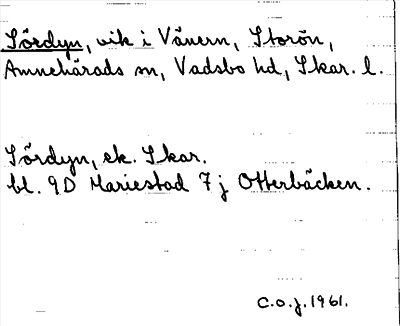 Sördyn, vik i Vänern, Storön,
Amnehärads sn, Vadsbo hd, Skar. l.
Sördyn, ek. Skar.
bl. 9D Mariestad 7j Otterbäcken.
C.O.J. 1961.